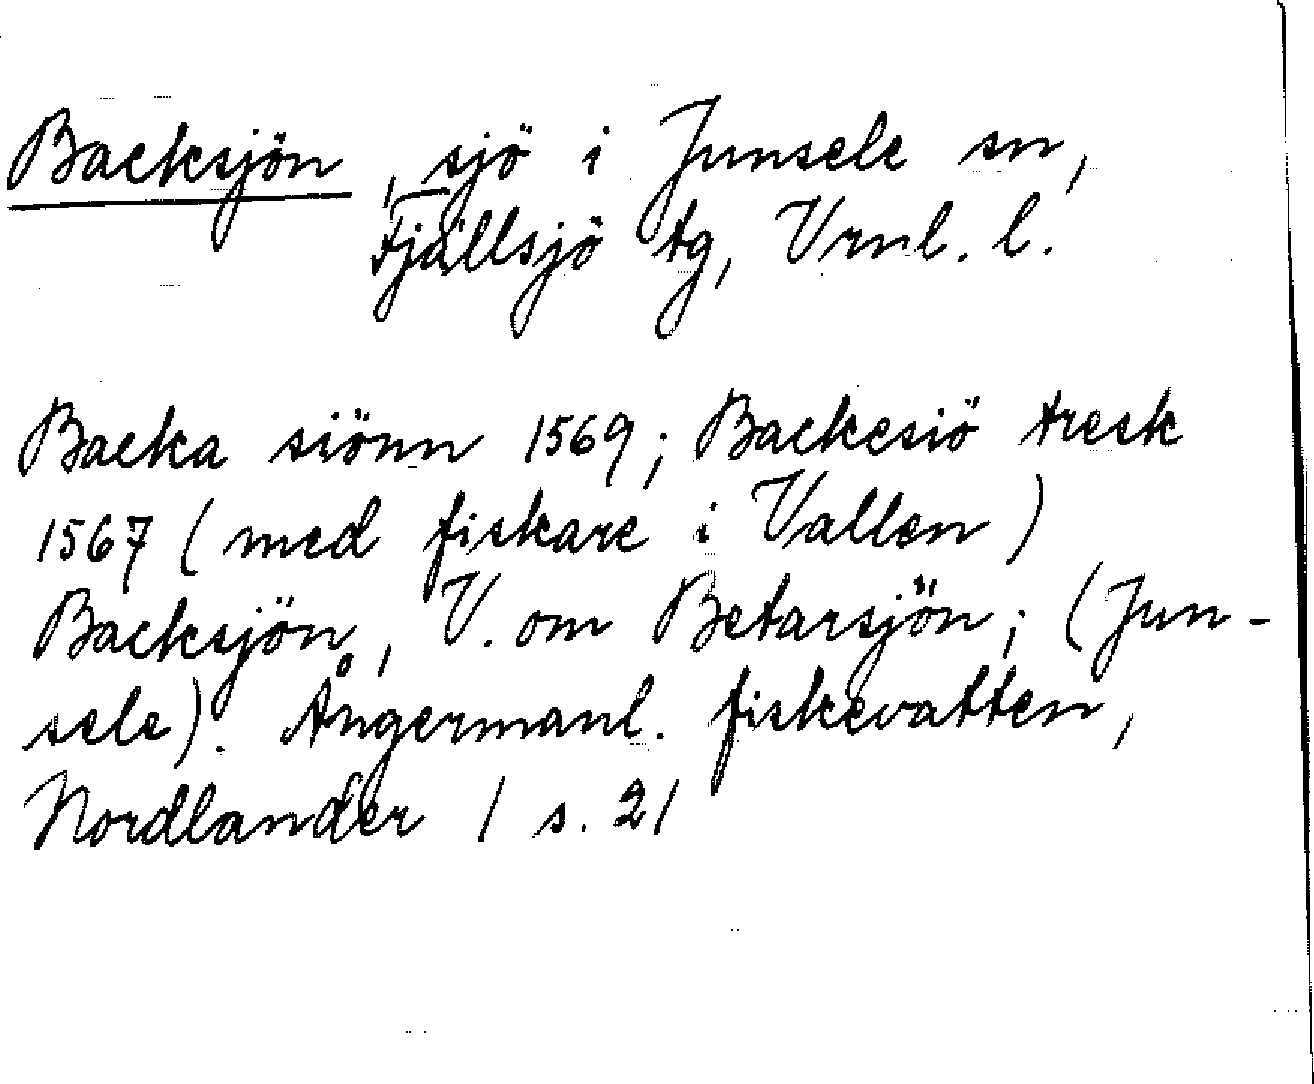 Backsjön, sjö i Junsele sn,
Fjällsjö tg, Vrnl. l.
Backa siönn 1569; Backesiö tresk
1567 (med fiskare i Vallen)
Backsjön, V. om Betarsjön; (Jun-
sele). Ångermanl. fiskevatten,
Nordlander 1 s. 21